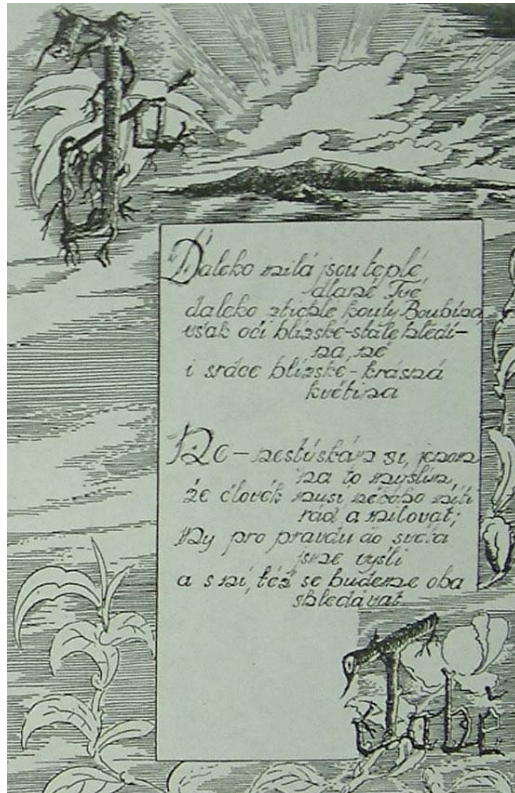 Daleko milá jsou teplé
dlaně Tvé
daleko ztichlé kouty Boubína,
však oči blízské-stále hledí-
na mě
i srdce blízské - krásná
květina
Ne - nestýskám si, jenom
na to myslím,
že člověk musí někoho míti
rád a milovat;
my pro pravdu do světa
jsme vyšli
a s ní, též se budeme oba
shledávat
Tobě